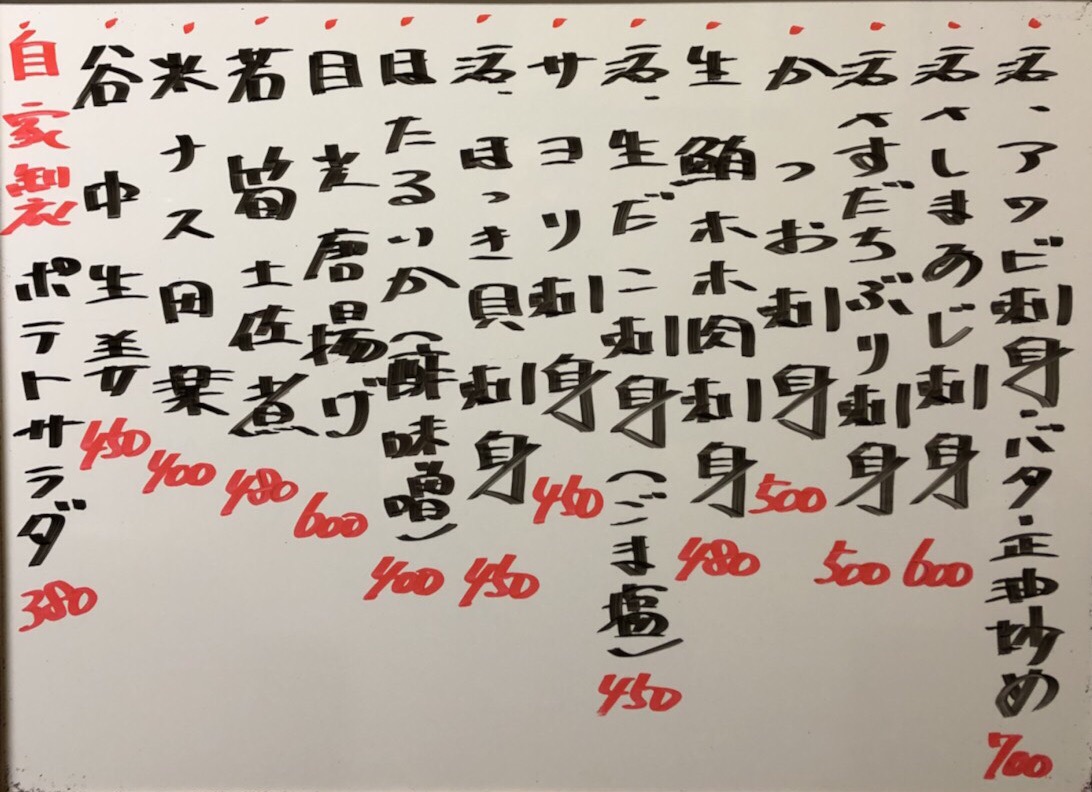 活、アワビ刺身・バタ・正油炒め 700
活、しまあじ刺身 600
活、すだちぶり刺身 500
かつお刺身 500
生鮪ホホ肉刺身 480
活、生だこ刺身(ごま塩) 450
サヨリ刺身 450
活、ほっき貝刺身 450
ほたるいか(酢味噌) 400
目光唐揚げ 600
若筍土佐煮 480
米ナス田楽 400
谷中生姜 450
自家製ポテトサラダ 380